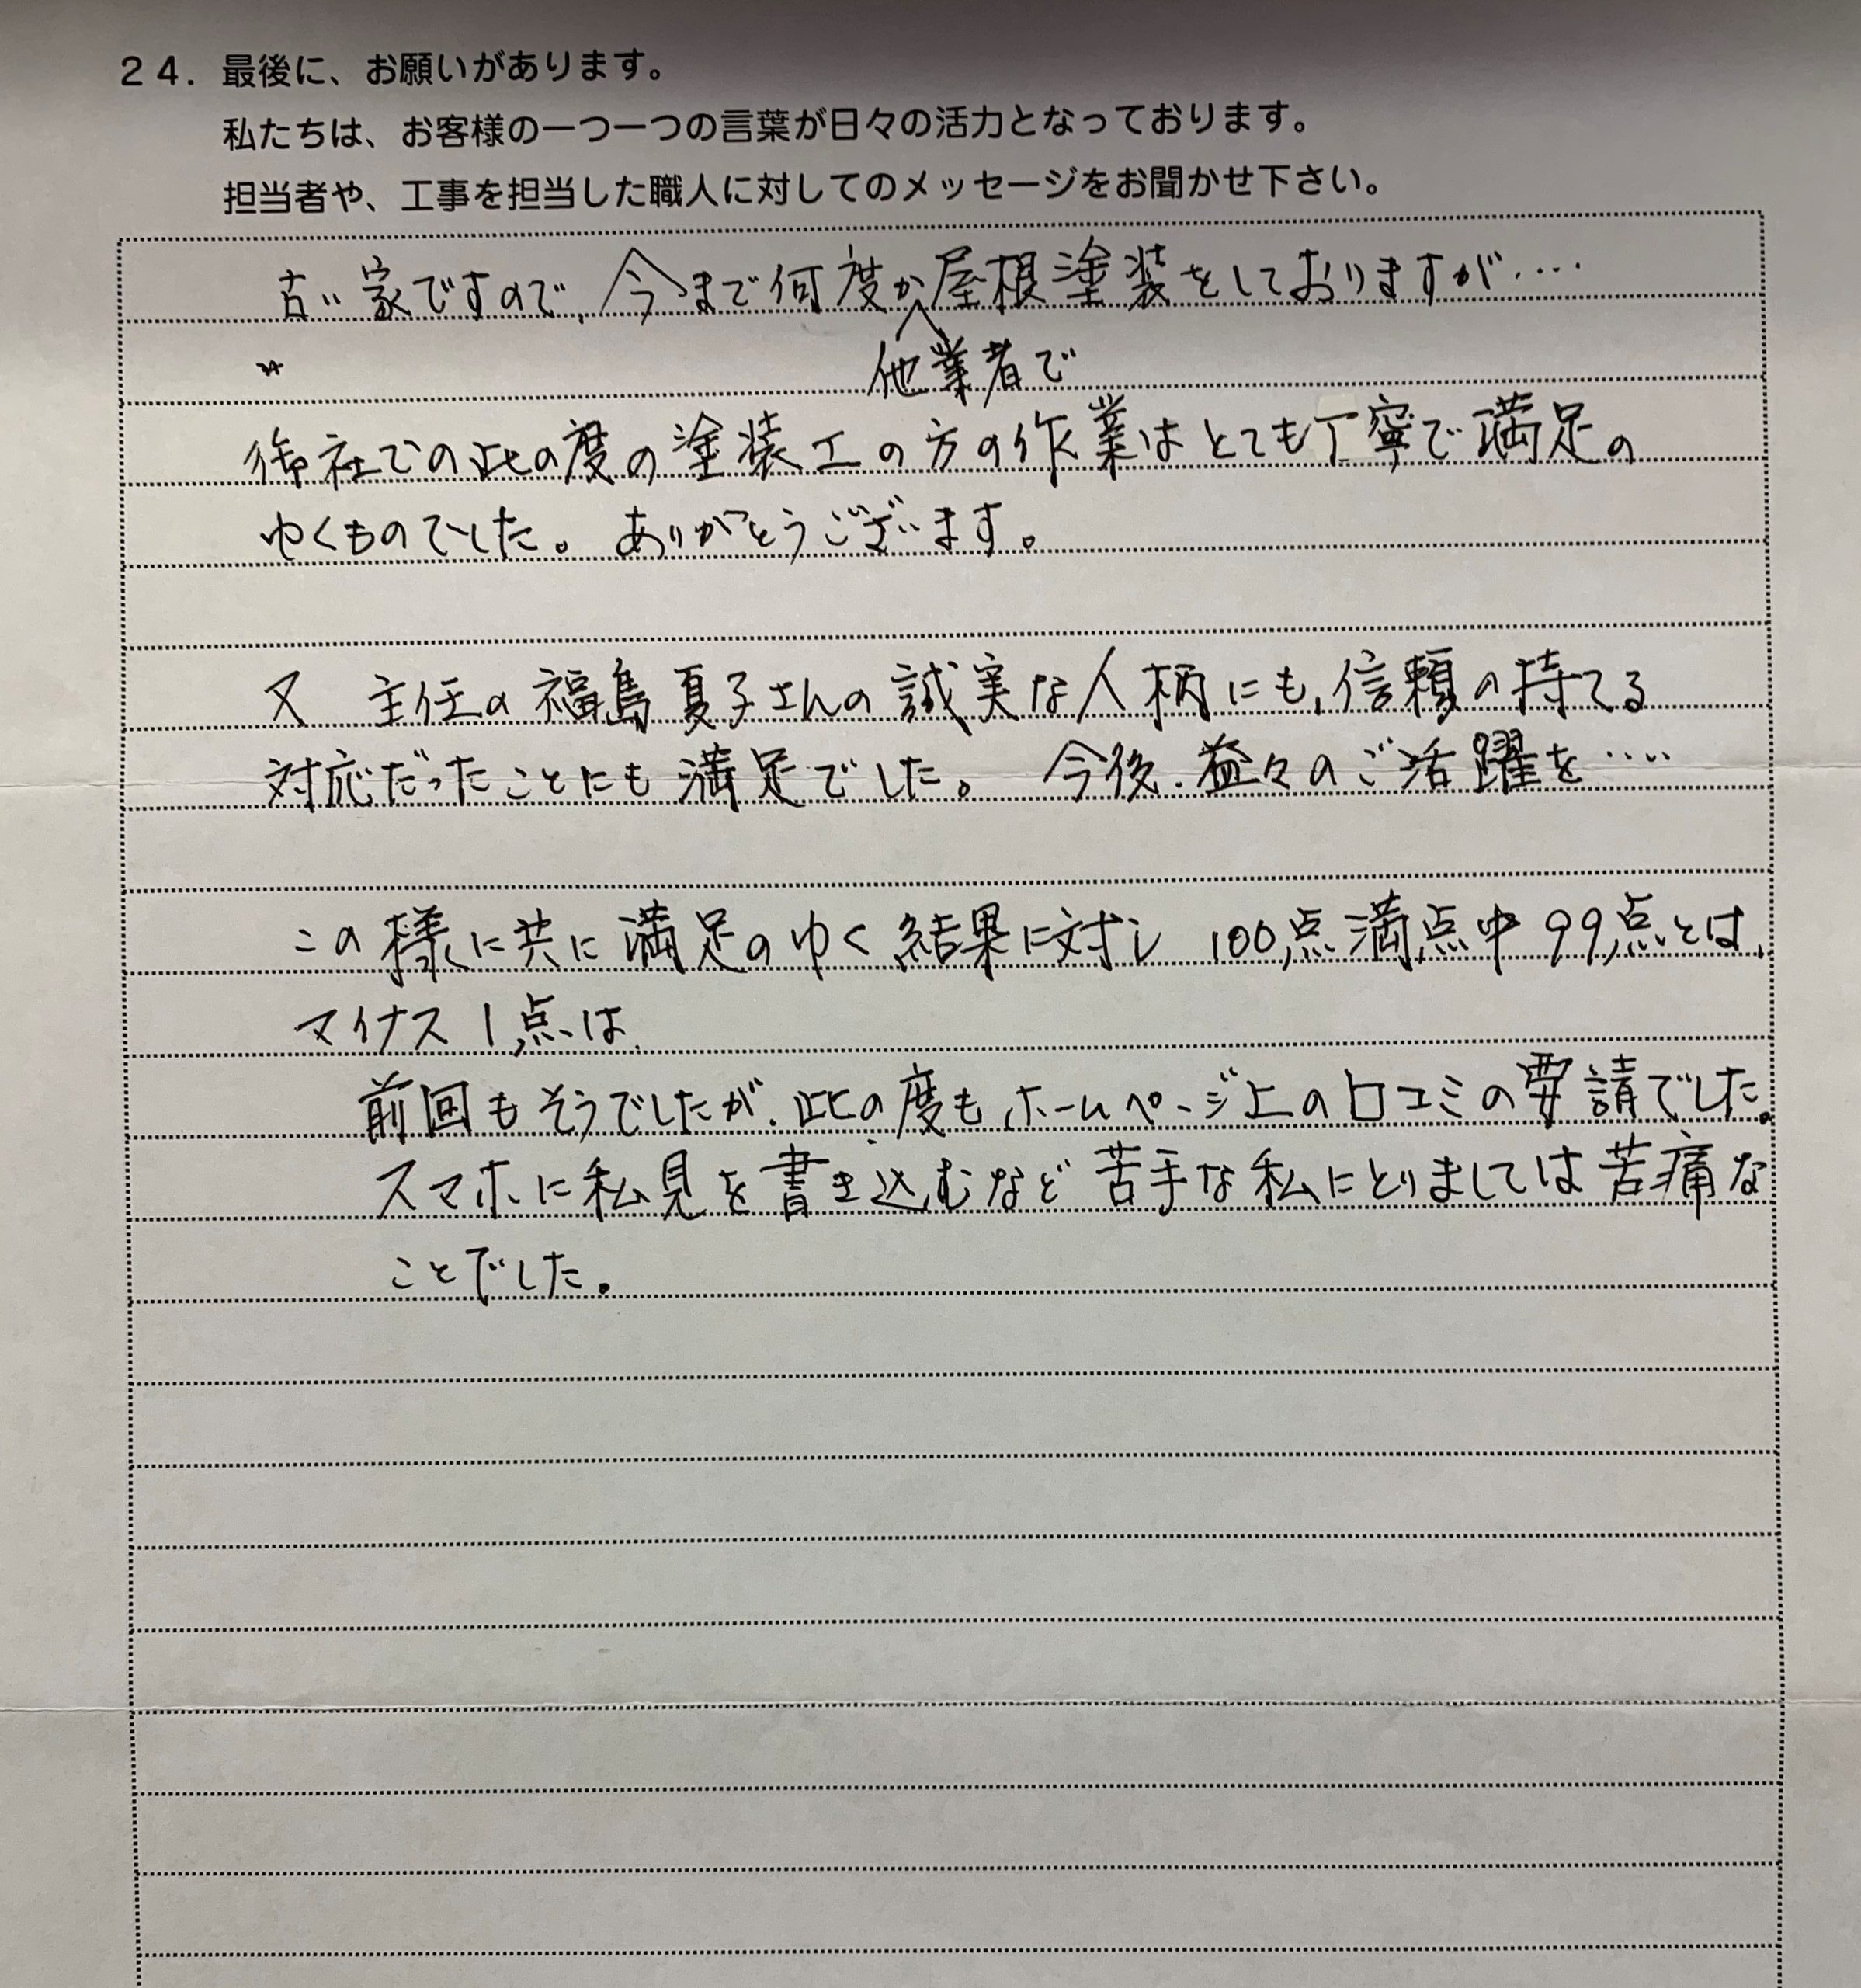 24. 最後に、お願いがあります。
私たちは、お客様の一つ一つの言葉が日々の活力となっております。
担当者や、工事を担当した職人に対してのメッセージをお聞かせ下さい。
古い家ですので、今まで何度か屋根塗装をしておりますが‥‥
他業者で
御社での此の度の塗装工の方の作業はとても丁寧で満足の
ゆくものでした。ありがとうございます。
又 主任の福島夏子さんの誠実な人柄にも、信頼の持てる
対応だったことにも満足でした。 今後、益々のご活躍を‥‥
この様に共に満足のゆく結果に対し 100点満点中 99点とは、
マイナス1点は、
前回もそうでしたが、此の度も、ホームページ上の口コミの要請でした。
スマホに私見を書き込むなど苦手な私にとりましては苦痛な
ことでした。